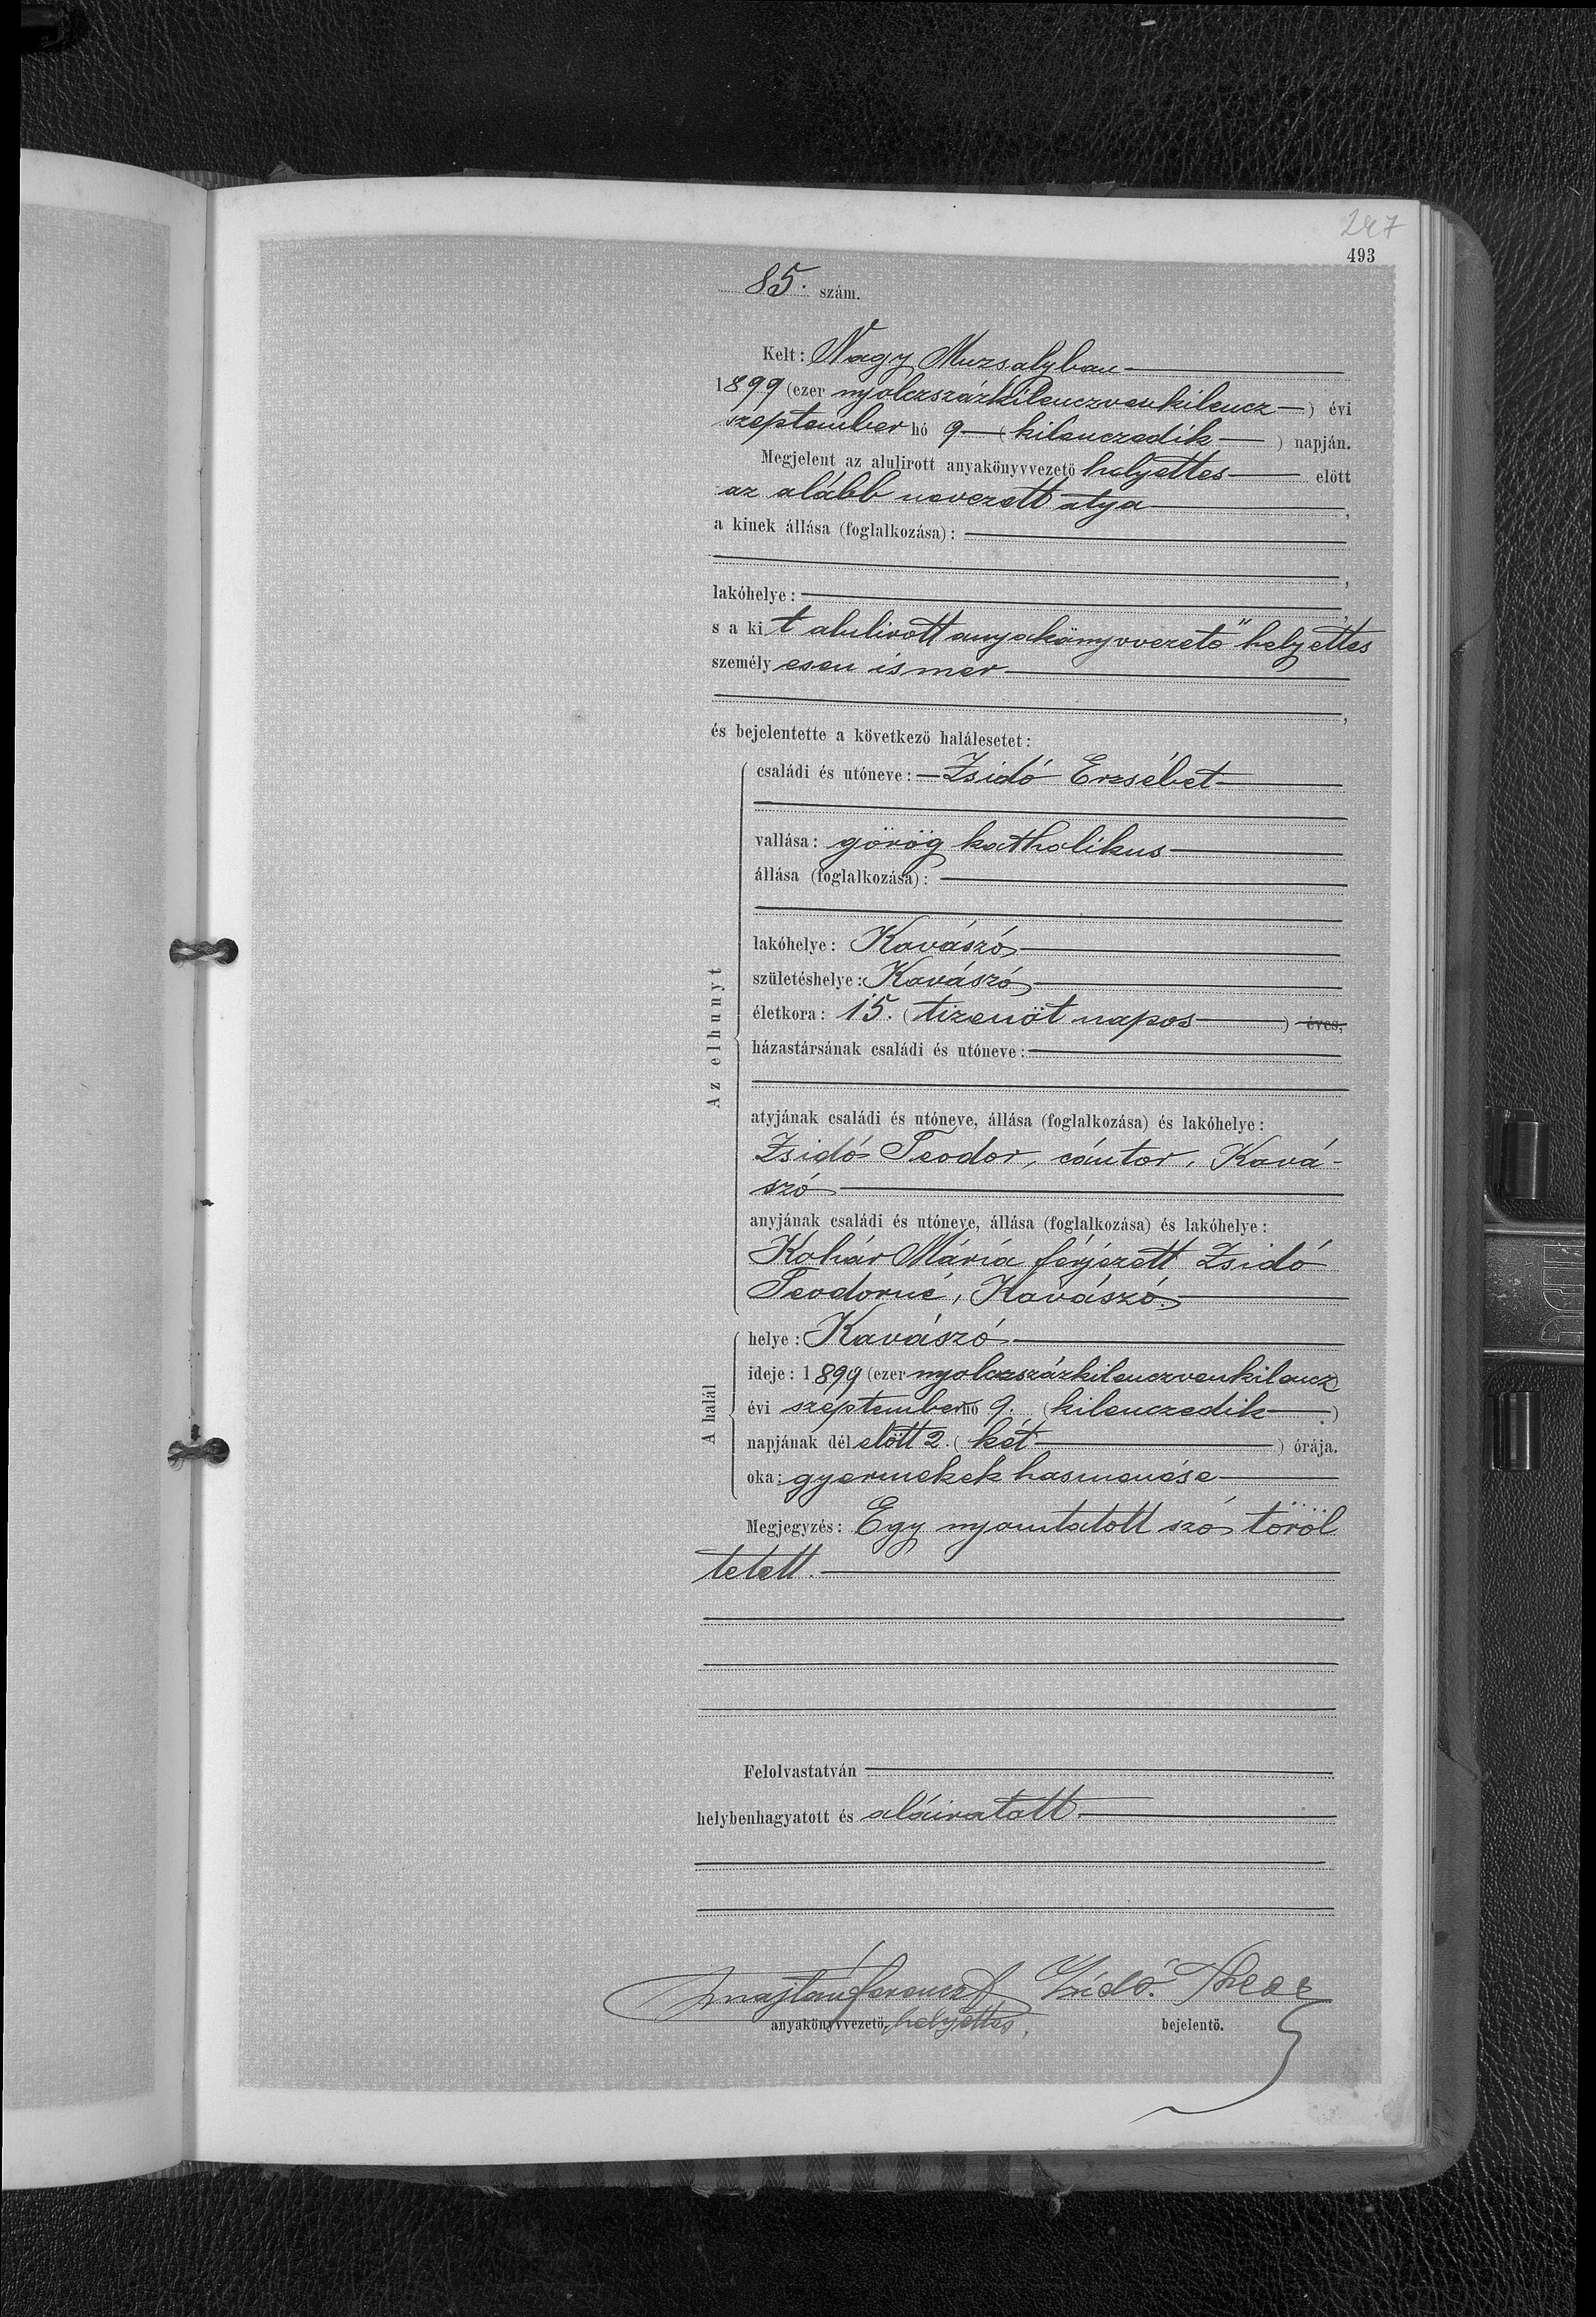 247
493
85. szám.
Kelt: Nagy Muzsalyban
1899 (ezer nyolczszázkilenczvenkilencz) évi
szeptember hó 9 (kilenczedik) napján.
Megjelent az alulirott anyakönyvvezető helyettes előtt
az alább nevezett atya,
a kinek állása (foglalkozása):
,
lakóhelye:
s a kit alulirott anyakönyvvezető helyettes
személyesen ismer
,
és bejelentette a következő halálesetet:
Az elhunyt
családi és utóneve: Zsidó Erzsébet
vallása: görög katholikus
állása (foglalkozása):
lakóhelye: Kovászó
születéshelye: Kovászó
életkora: 15. (tizenöt napos) éves,
házastársának családi és utóneve:
atyjának családi és utóneve, állása (foglalkozása) és lakóhelye:
Zsidó Teodor, cántor, Ková-
szó
anyjának családi és utóneve, állása (foglalkozása) és lakóhelye:
Kohár Mária férjezett Zsidó
Teodorné, Kovászó
A halál
helye: Kovászó
ideje: 1899 (ezer nyolczszázkilenczvenkilencz)
évi szeptember hó 9. (kilenczedik)
napjának délelőtt 2. (két) órája.
oka: gyermekek hasmenése
Megjegyzés: Egy nyomtatott szó töröl
tetett.
Felolvastatván
helybenhagyatott és aláiratott.
Majtán Ferencz Zsidó
anyakönyvvezető, helyettes. bejelentő.